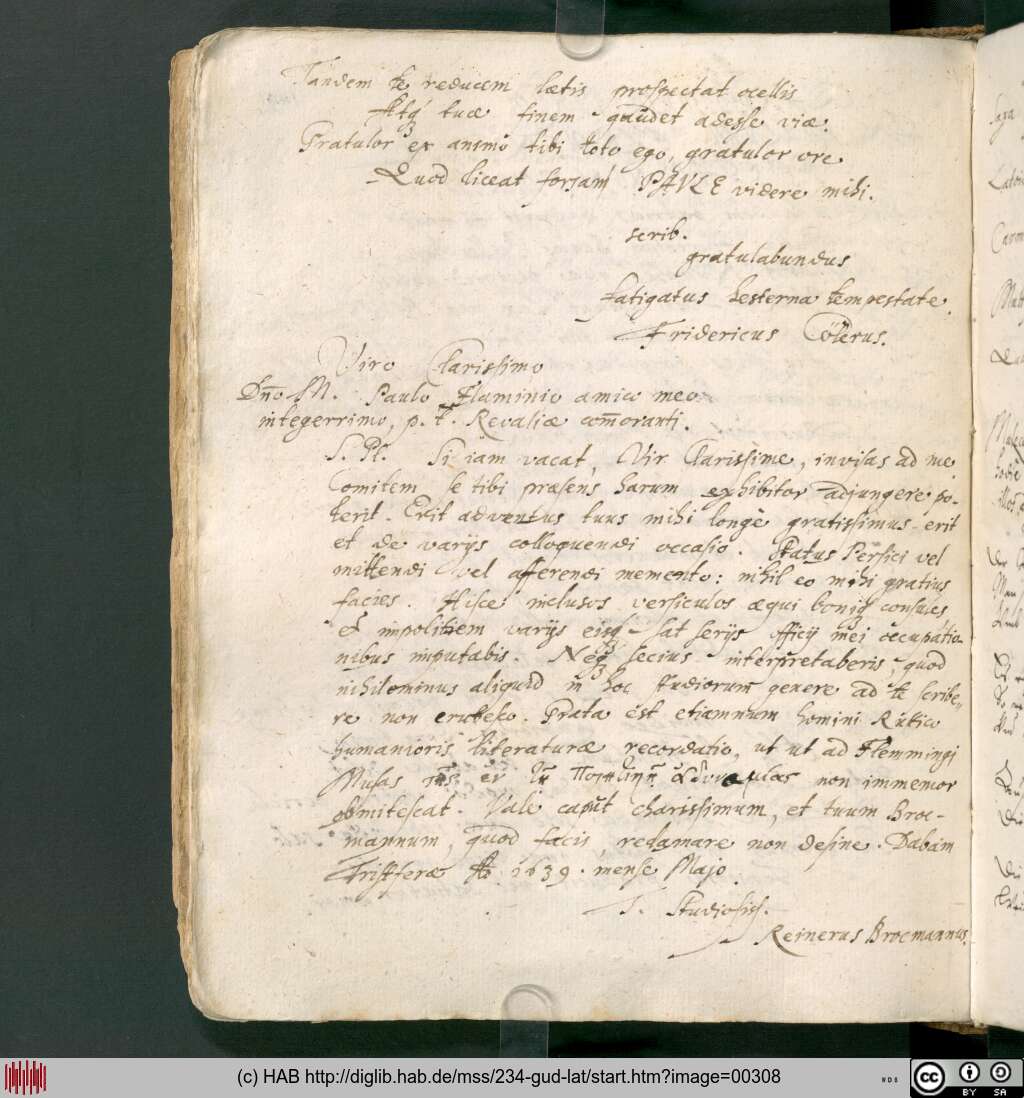 Tandem te reducem lætis prospectat ocellis
Atqꝫ tuæ finem gaudet adesse viæ.
Gratulor ex animo tibi toto ego, gratulor ore
Quod liceat forsam PAVLE videre mihi.
scrib.
gratulabundus
fatigatus hesterna tempestate
Fridericus Cöllerus.
Viro Clarissimo
Dn̄o M. Paulo Flaminio amico meo
integerrimo, p. t. Revaliæ com̄oranti.
S. Pl. Si iam vacat, Vir Clarissime, invisas ad me
Comitem se tibi præsens harum exhibitor adjungere po-
terit. Erit adventus tuus mihi longè gratissimus, erit
et de varijs colloquendi occasio. Status Persici vel
mittendi vel afferendi memento: nihil eo mihi gratius
facies. Hisce inclusos versiculos æqui boniqꝫ consules
et impolitiem varijs eisqꝫ sat serijs officij mei occupatio-
nibus imputabis. Neqꝫ secius interpretaberis, quod
nihilominus aliquid in hoc studiorum genere ad te scribe-
re non erubesco. Grata est etiamnum homini Rustico
humanioris literaturæ recordatio, ut ut ad Flemmingi
Musas non immemor
obmitescat. Vale caput charissimum, et tuum Broc-
mannum, quod facis, redamare non desine. Dabam
Tristferæ Aō 1639. mense Majo
T. Studiosiss.
Reinerus Brocmannus.
(c) HAB http://diglib.hab.de/mss/234-gud-lat/start.htm?image=00308
cc BY SA